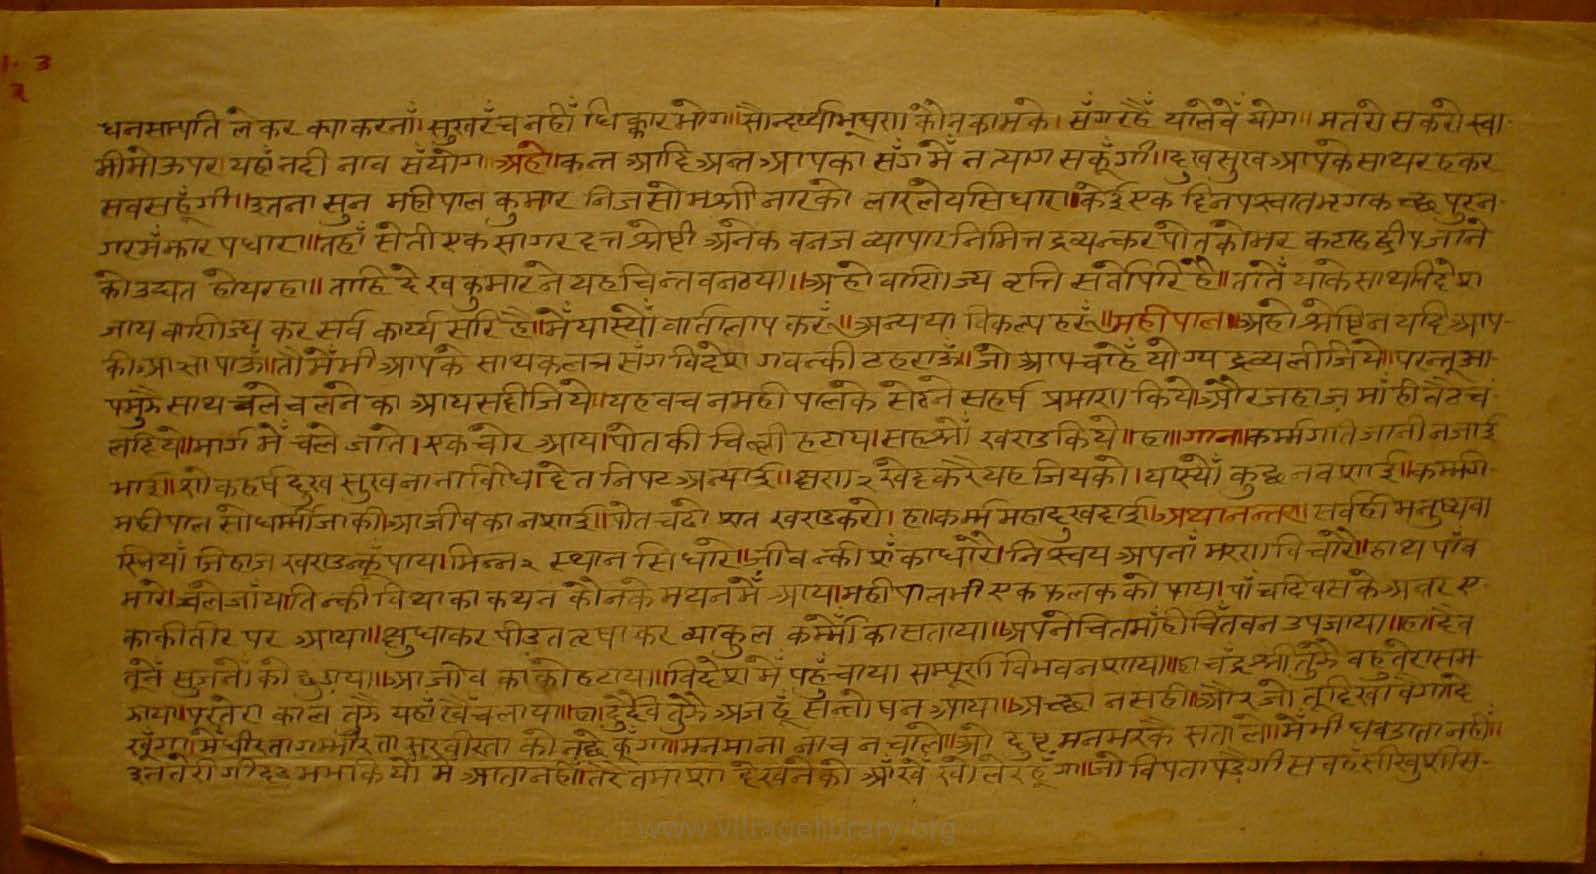 धनसम्पति लेकर क्या करनाँ। सुखरँच नहीँ धिक्कार भोग॥ सौन्दर्य्याभूषण कौन काम के। सँग रहैँ या लेवेँ योग॥ मत रोस करो स्वा-
मी मो ऊपर। यहाँ नदी नाव सँयोग॥ अहो कन्त आदि अन्त आपका सँग मेँ न त्याग सकूँगी॥ दुख सुख आपके साथ रहकर
सब सहूँगी॥ इतना सुन महीपाल कुमार निज सोमश्री नारको लार लेय सिधारा॥ केईएक दिन पश्चात भृगकच्छ पुर न-
गर मँझार पधारा॥ तहाँ सेती एक सागरदत्त श्रेष्टी अनेक वनज व्यापार निमित्त द्रव्यन्कर पोतको भर कटाह द्वीप जाने
को उद्यत होय रहा॥ ताहि देख कुमार ने यह चिन्तवन ठया॥ अहो वाणिज्य वृत्ति सर्वोपरि है॥ तातेँ याके साथ विदेश
जाय वाणिज्य कर सर्व कार्य्य सरि है॥ मेँ यास्योँ वार्तालाप करूँ॥ अन्यथा विकल्प हरूँ॥ महीपाल॥ अहो श्रेष्टिन यदि आप-
की आज्ञा पाऊँ॥ तो मेँ भी आपके साथ कलत्र सँग विदेश गवन्की ठहराऊँ॥ जो आप चाहेँ योग्य द्रव्य लीजिये॥ परन्तू आ-
प मुझै साथ चले चलने का आयस दीजिये॥ यह वचन महीपालके सेठने सहर्ष प्रमाण किये॥ और जहाज़ माँही बैठ च-
ल दिये॥ मार्ग मेँ चले जाते। एक चोर आया। पोत की हटाय। खण्ड किये॥ हा॥ गाना॥ कर्म्मगति जानी न जाई
भाई॥ शोक हर्ष दुख सुख नानाविधि। देत निपट अन्याई॥ क्षण २ खेद करै यह जियको। यास्योँ कुछ न वशाई॥ कर्म्मगति
महीपाल सो धर्म्मी जाकी। आजीवका नशाई॥ पोत चढो शत खण्ड करो। हा। कर्म्म महादुखदाई॥ अथानन्तर॥ सर्वही मनुष्य वा
स्त्रियाँ जिहाज खण्डन्कूँ पाय। भिन्न २ स्थान सिधारे॥ जीवन्की शँका धारे। निश्चय अपनाँ मरण विचारे॥ हाथ पाँव
मारे। चले जाँय। तिन्की विथा का कथन कौनके मथन मेँ आय। महीपाल भी एक फलक को पाय। पाँच दिवस के अन्तर ए-
काकी तीर पर आया॥ क्षुधाकर पीडित तृषाकर व्याकुल कर्म्मोँ का सताया॥ अपने चित माँही चिँतवन उपजाया॥ हा दैव
तूनेँ सुजनोँ को छुडाया॥ आजीवका को हटाया॥ विदेश मेँ पहुँचाया सम्पूर्ण विभव नशाया॥ हा चँद्रश्री तुझै बहुतेरा सम-
झाया॥ पर तेरा काल तुझै यहाँ खेँच लाया॥ हा दुर्दैव तुझै अजहूँ सन्तोष न आया॥ अच्छा न सही॥ और जो तू दिखावेगा दे-
खूँगा॥ मेँ धीरता गम्भीरता सूरवीरता को न फेकूँगा॥ मनमाना नाच नचाले॥ ओ दुष्ट मन भरकै सताले॥ मेँ भी घबडाता नहीँ॥
इन तेरी गीदड भभकियोँ मेँ आता नहीँ॥ तेरे तमाशा देखने को आँखेँ खोले रहूँगा॥ जो विपता पडेगी सब हँसी खुशी स-
www.villagelibrary.org